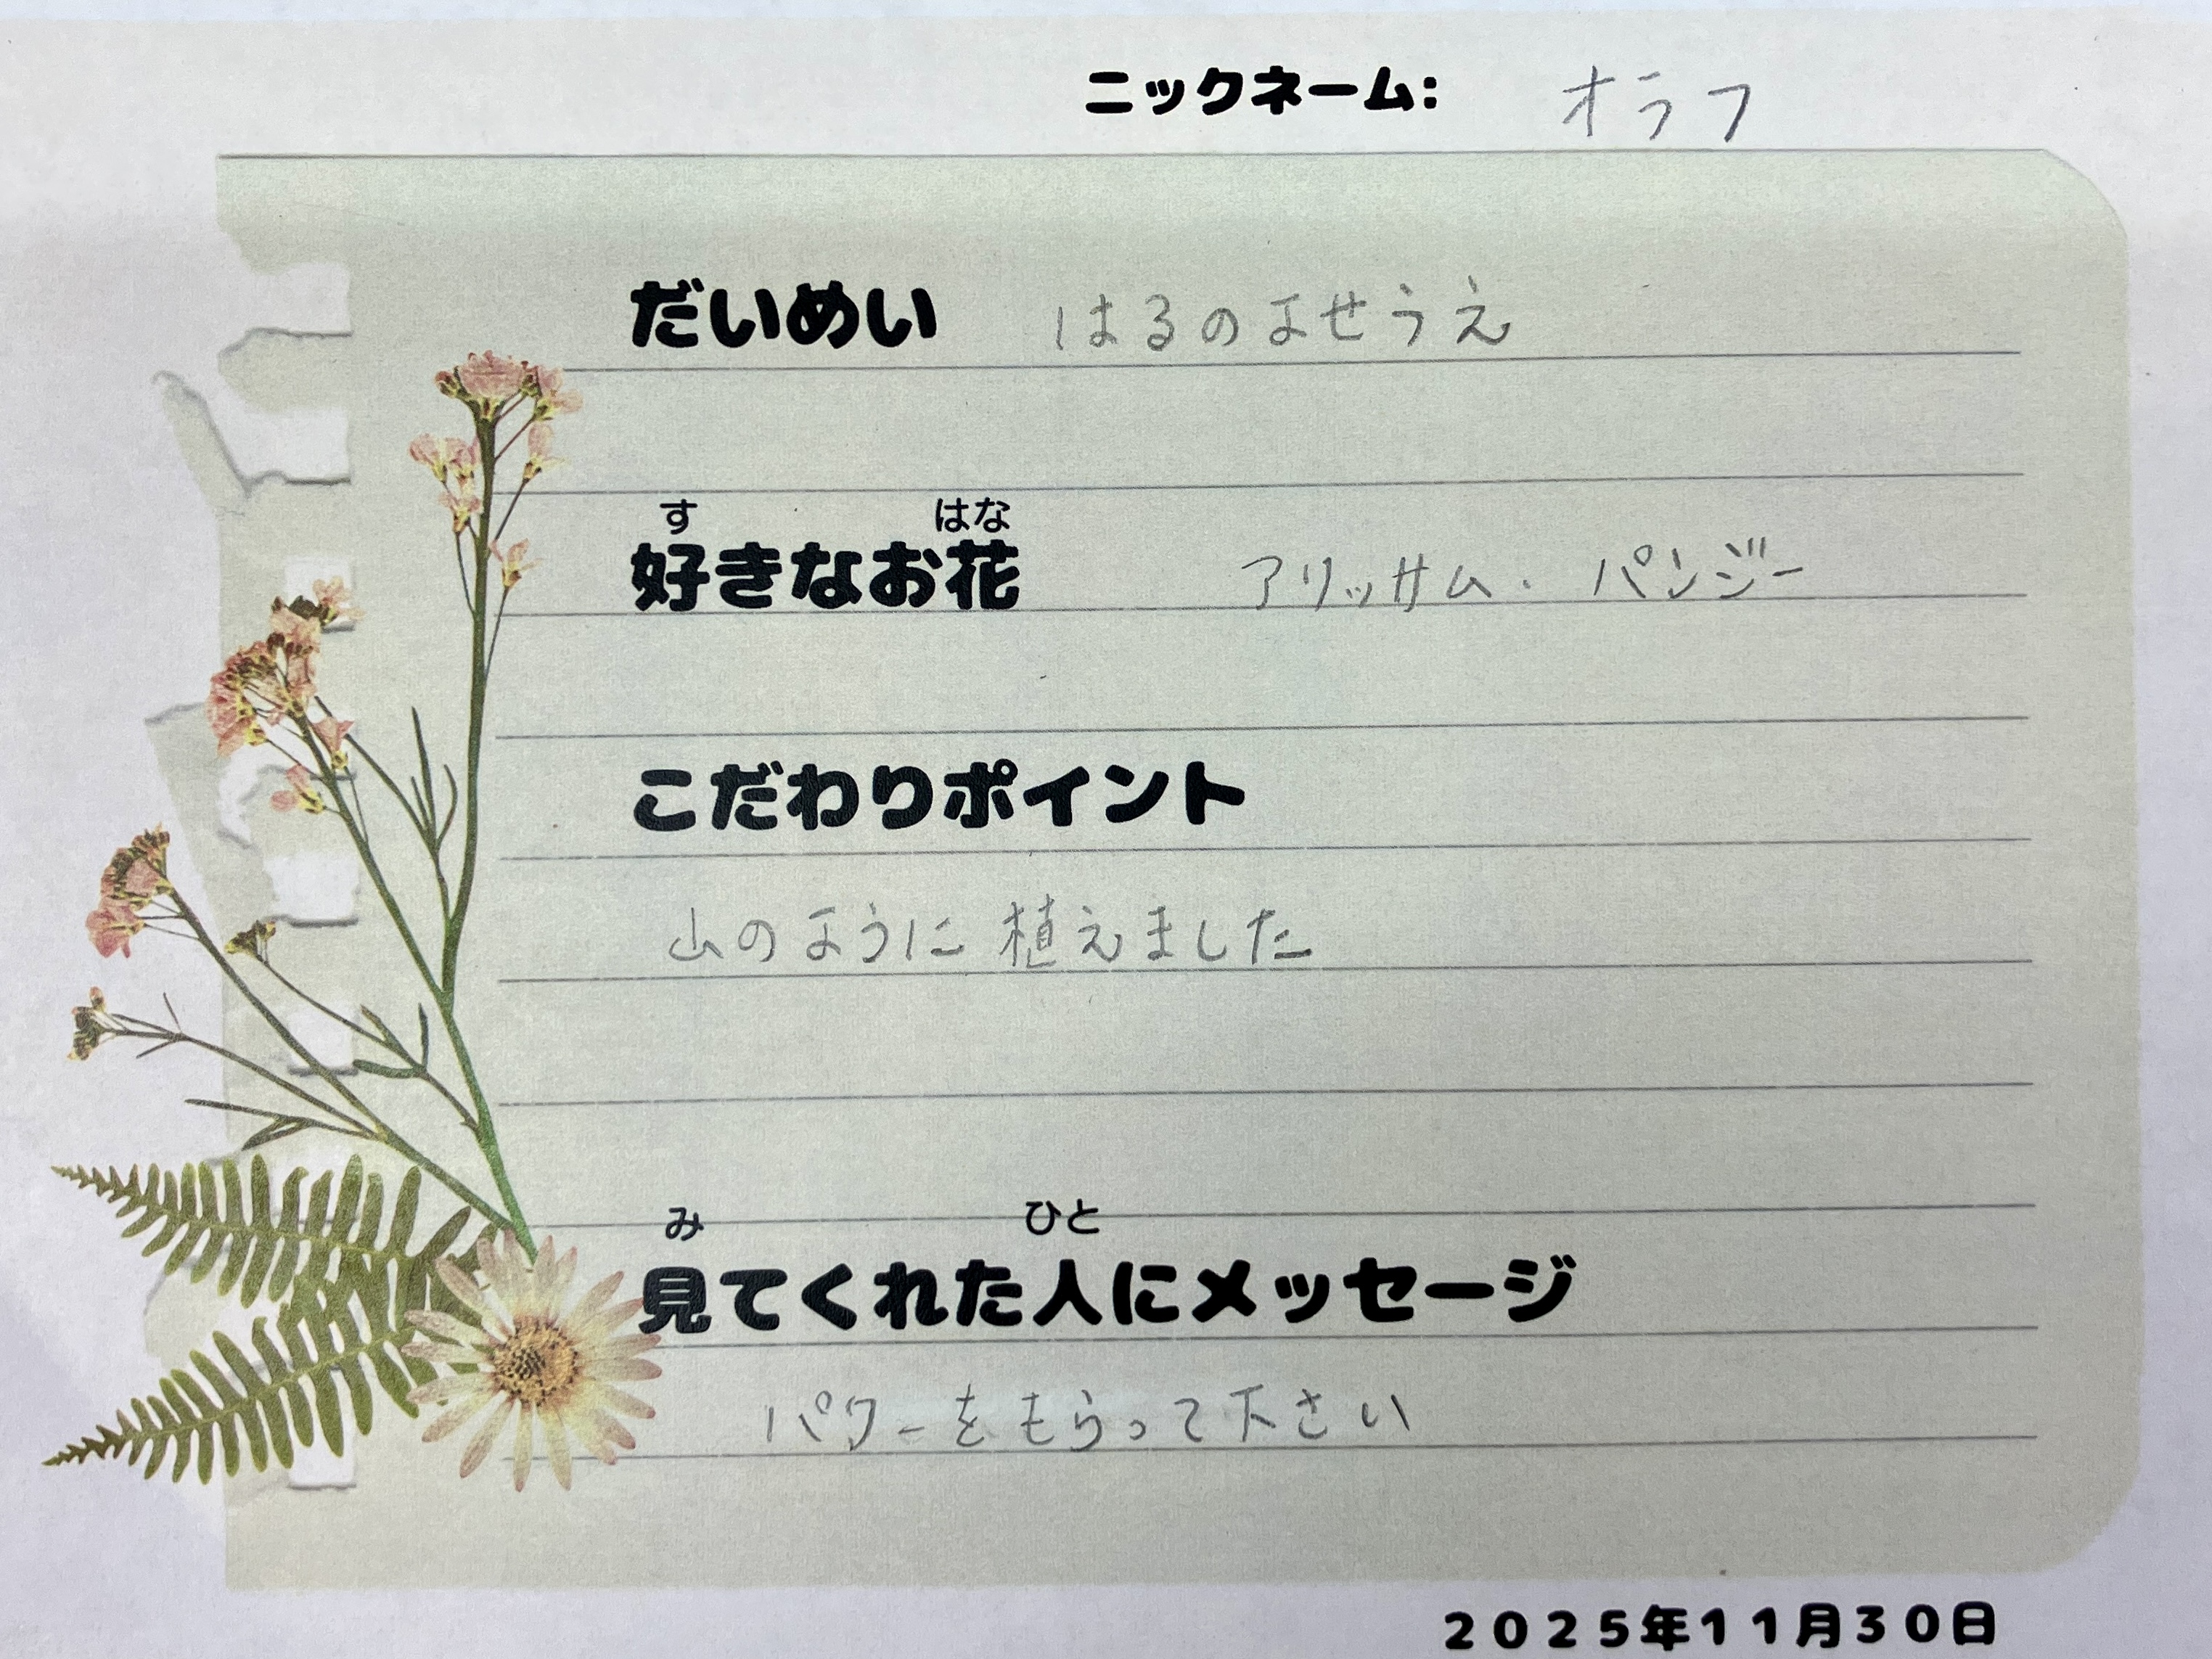 ニックネーム: オラフ
だいめい はるのよせうえ
す はな
好きなお花 アリッサム・パンジー
こだわりポイント
山のように植えました
み ひと
見てくれた人にメッセージ
パワーをもらって下さい
2025年11月30日